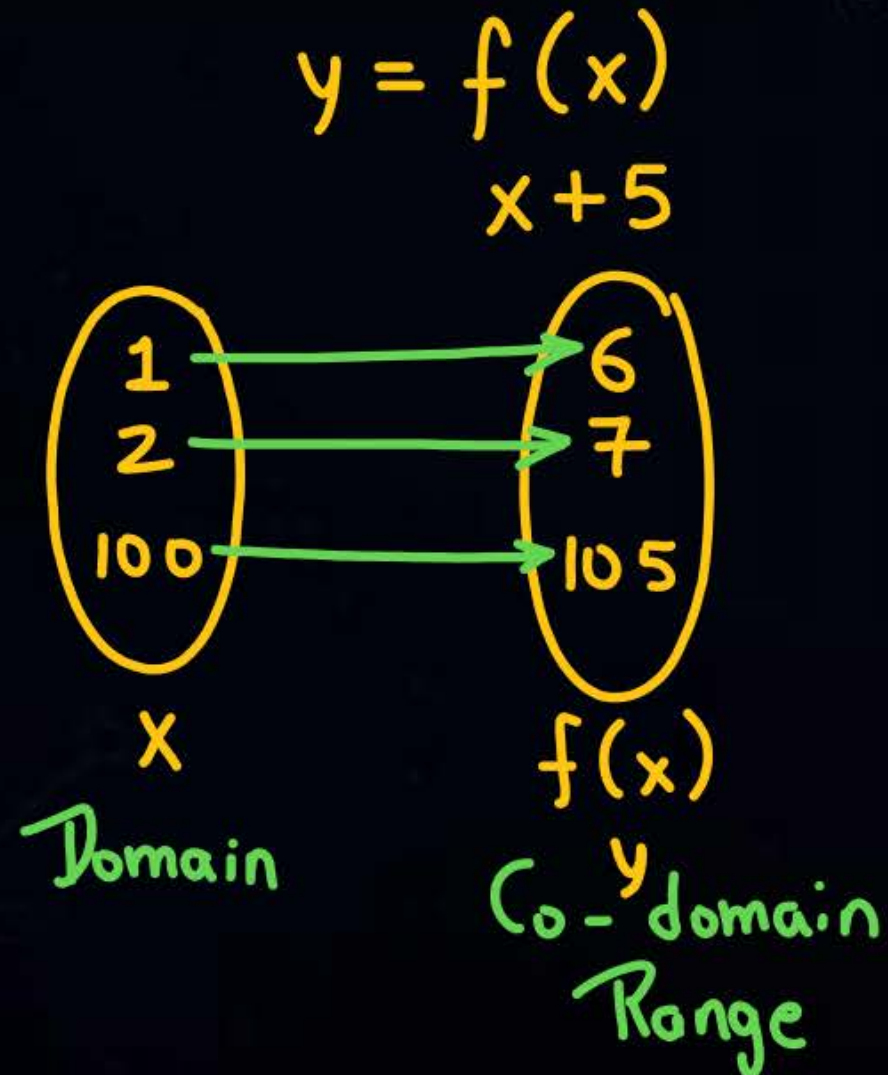 y = f(x)
x + 5
1 6
2 7
100 105
x f(x)
Domain y
Co-domain
Range